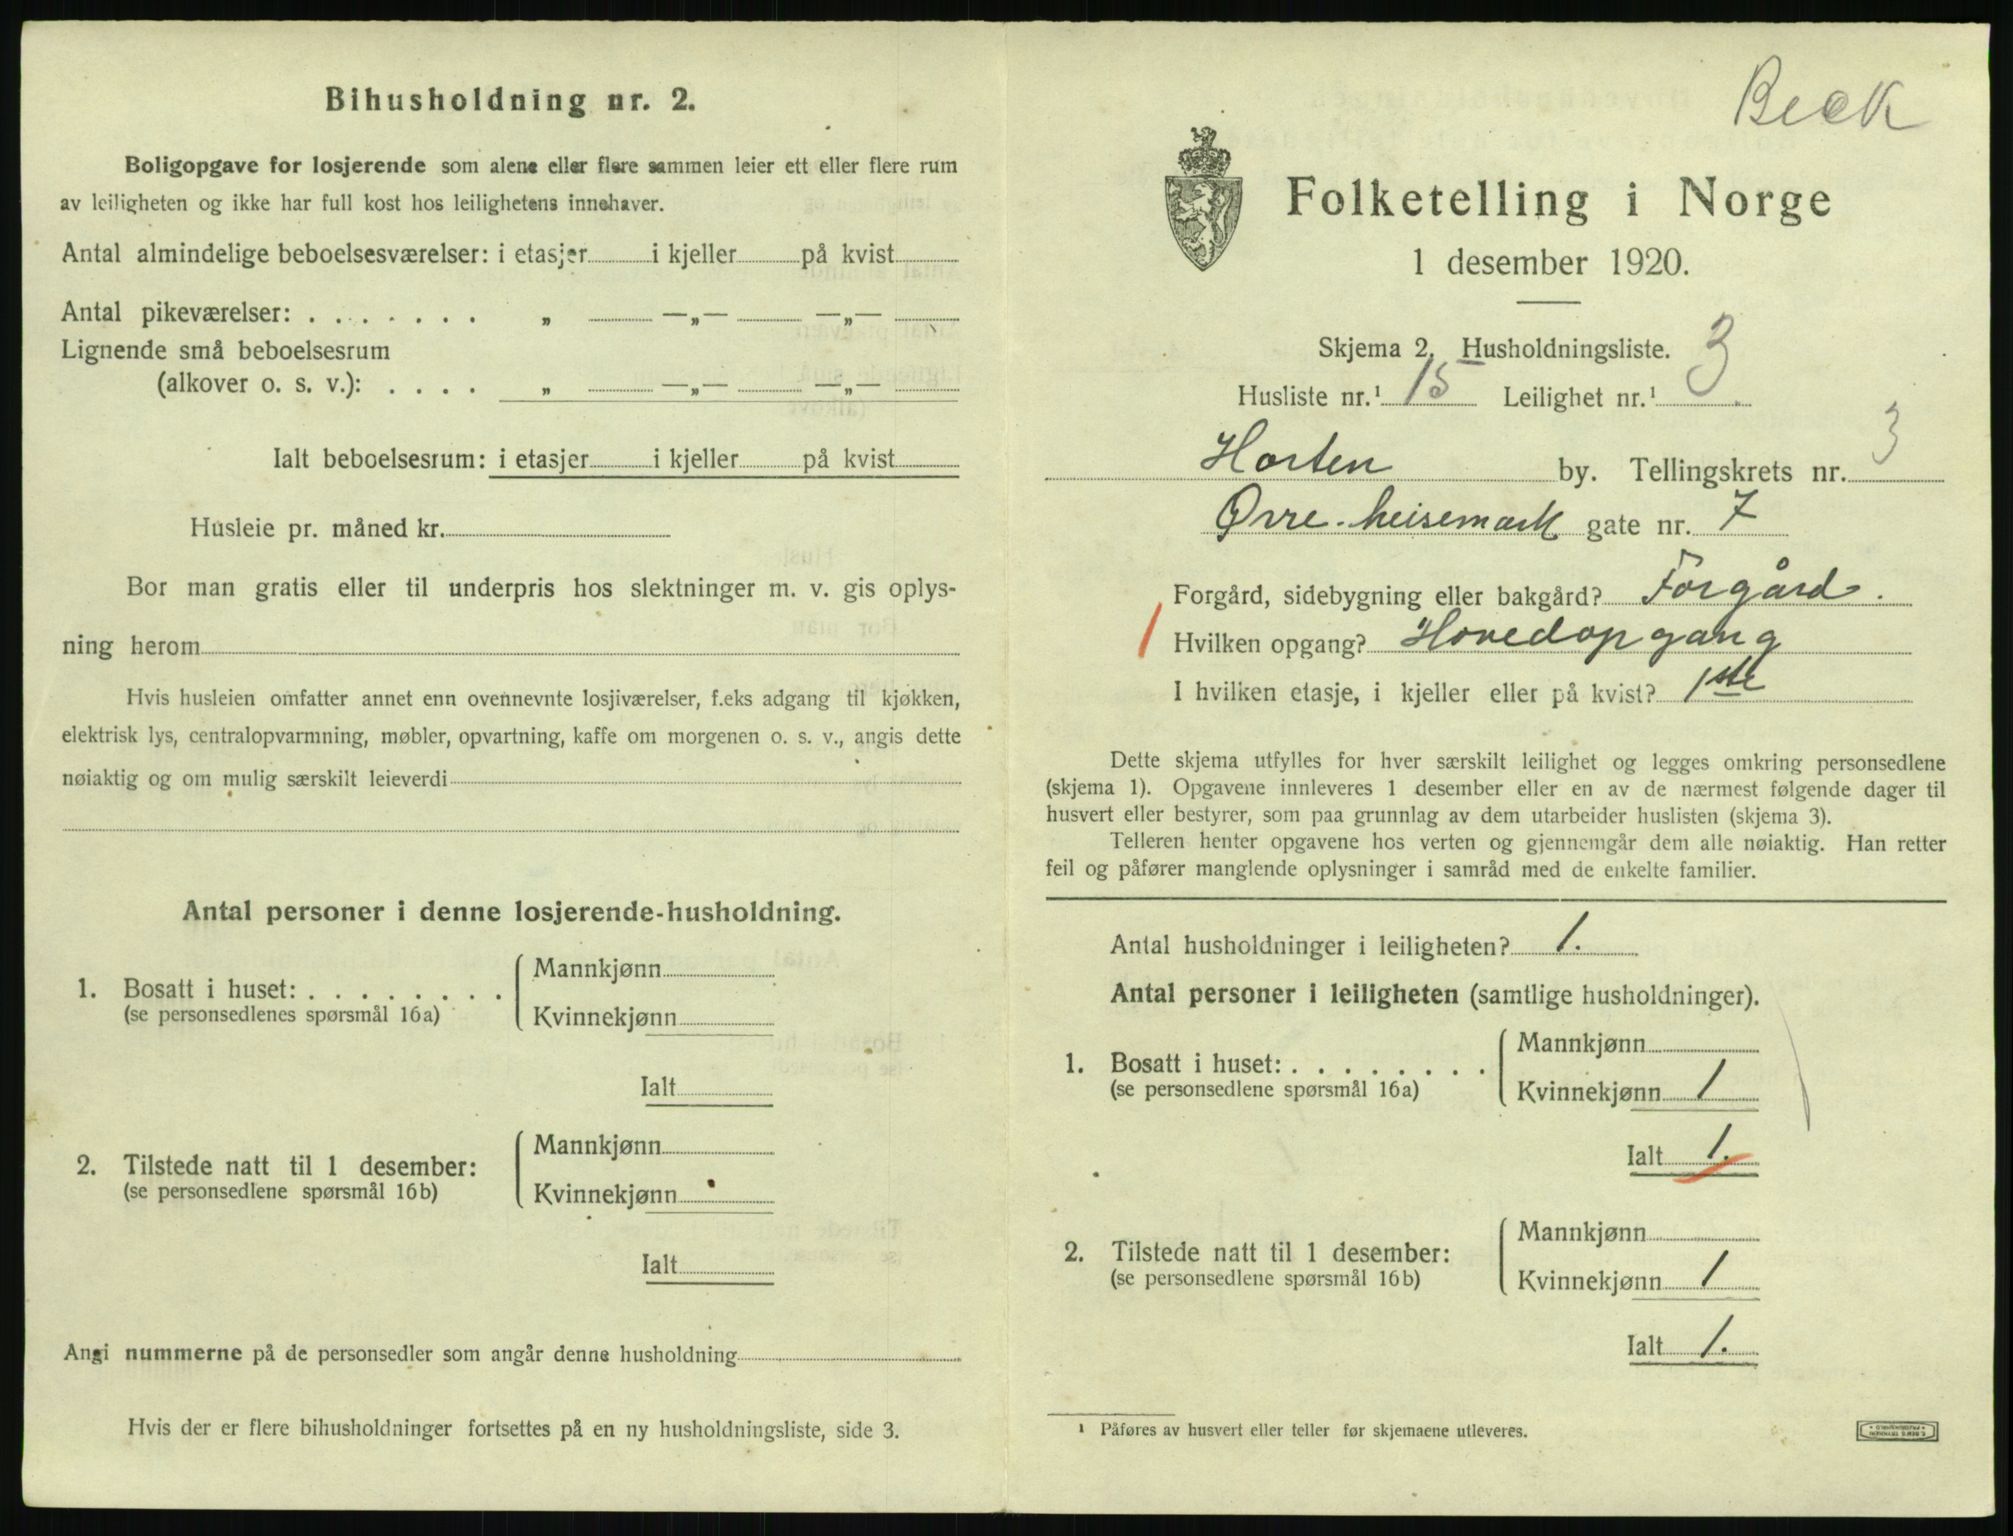 Bihusholdning nr. 2.
Boligopgave for losjerende som alene eller flere sammen leier ett eller flere rum
av leiligheten og ikke har full kost hos leilighetens innehaver.
Antal almindelige beboelsesværelser: i etasjer i kjeller på kvist
Antal pikeværelser: . . . . . . . „ —„— —„—
Lignende små beboelsesrum
(alkover o. s. v.): . . . . „ —„— —„—
Ialt beboelsesrum: i etasjer i kjeller på kvist
Husleie pr. måned kr.
Bor man gratis eller til underpris hos slektninger m. v. gis oplys-
ning herom
Hvis husleien omfatter annet enn ovennevnte losjiværelser, f.eks adgang til kjøkken,
elektrisk lys, centralopvarmning, møbler, opvartning, kaffe om morgenen o. s. v., angis dette
nøiaktig og om mulig særskilt leieverdi
Antal personer i denne losjerende-husholdning.
1. Bosatt i huset: . . . . . . . . Mannkjønn
(se personsedlenes spørsmål 16a) Kvinnekjønn
Ialt
2. Tilstede natt til 1 desember: Mannkjønn
(se personsedlene spørsmål 16b) Kvinnekjønn
Ialt
Angi nummerne på de personsedler som angår denne husholdning
Hvis der er flere bihusholdninger fortsettes på en ny husholdningsliste, side 3.
Beck
Folketelling i Norge
1 desember 1920.
Skjema 2. Husholdningsliste.
Husliste nr.¹ 15 Leilighet nr.¹ 3
Horten by. Tellingskrets nr. 3
Øvre-keisemark gate nr. 7
Forgård, sidebygning eller bakgård? Forgård.
1 Hvilken opgang? Hovedopgang
I hvilken etasje, i kjeller eller på kvist? 1ste
Dette skjema utfylles for hver særskilt leilighet og legges omkring personsedlene
(skjema 1). Opgavene innleveres 1 desember eller en av de nærmest følgende dager til
husvert eller bestyrer, som paa grunnlag av dem utarbeider huslisten (skjema 3).
Telleren henter opgavene hos verten og gjennemgår dem alle nøiaktig. Han retter
feil og påfører manglende oplysninger i samråd med de enkelte familier.
Antal husholdninger i leiligheten? 1.
Antal personer i leiligheten (samtlige husholdninger).
1. Bosatt i huset: . . . . . . . . Mannkjønn
(se personsedlene spørsmål 16a) Kvinnekjønn 1
Ialt 1.
2. Tilstede natt til 1 desember: Mannkjønn
(se personsedlene spørsmål 16b) Kvinnekjønn 1
Ialt 1.
¹ Påføres av husvert eller teller før skjemaene utleveres.